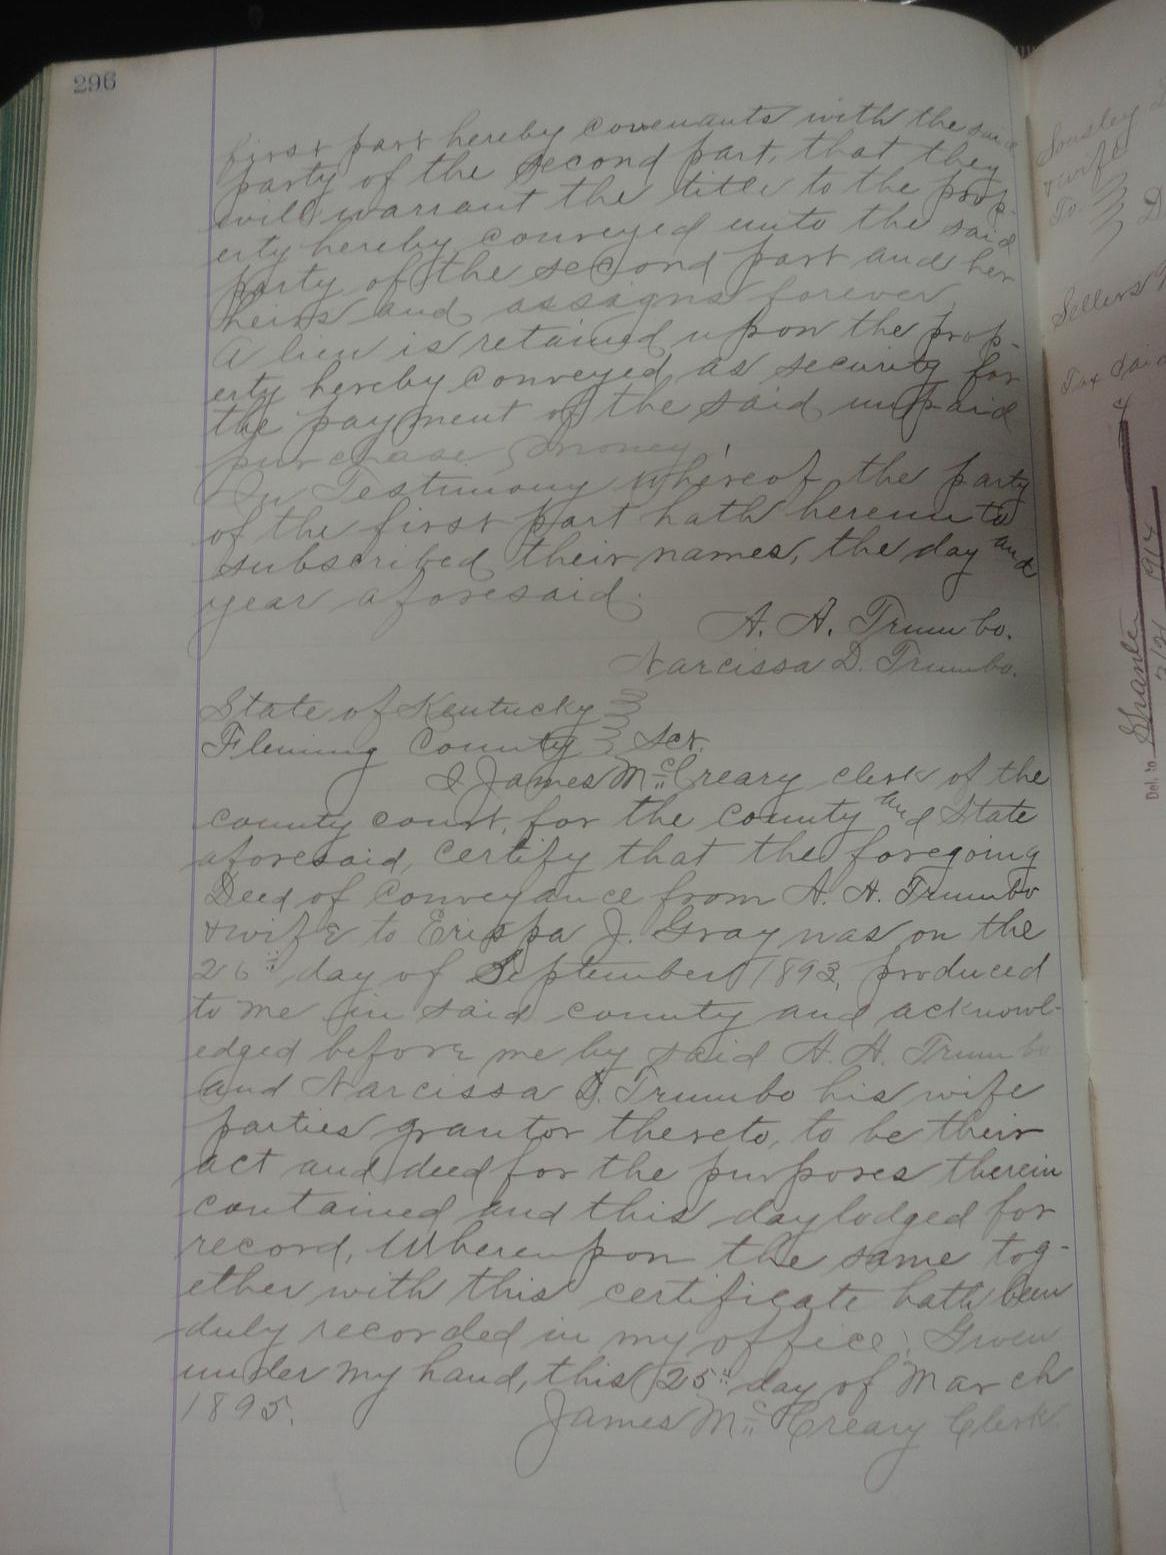 296
first part hereby covenants with the said
party of the second part, that they
will warrant the title to the prop-
erty hereby conveyed unto the said
party of the second part and her
heirs and assigns forever,
A lien is retained upon the prop-
erty hereby conveyed, as security for
the payment of the said unpaid
purchase money,
In Testimony whereof the party
of the first part hath hereunto
subscribed their names, the day and
year aforesaid.
A. A. Trumbo.
Narcissa D. Trumbo.
State of Kentucky
Fleming County Sct.
I James McCreary clerk of the
county court, for the county and State
aforesaid, certify that the foregoing
Deed of conveyance from A. A. Trumbo
& wife to Erispa J. Gray was on the
26" day of September 1893, produced
to me in said county and acknowl-
edged before me by said A. A. Trumbo
and Narcissa D. Trumbo his wife
parties grantor thereto, to be their
act and deed for the purposes therein
contained and this day lodged for
record, Whereupon the same tog-
ether with this certificate hath been
duly recorded in my office. Given
under my hand, this 25" day of March
1895.
James McCreary Clerk
Sousley
& wife
To
D
Sellers
Tax Paid
Del. to Grantee
1914